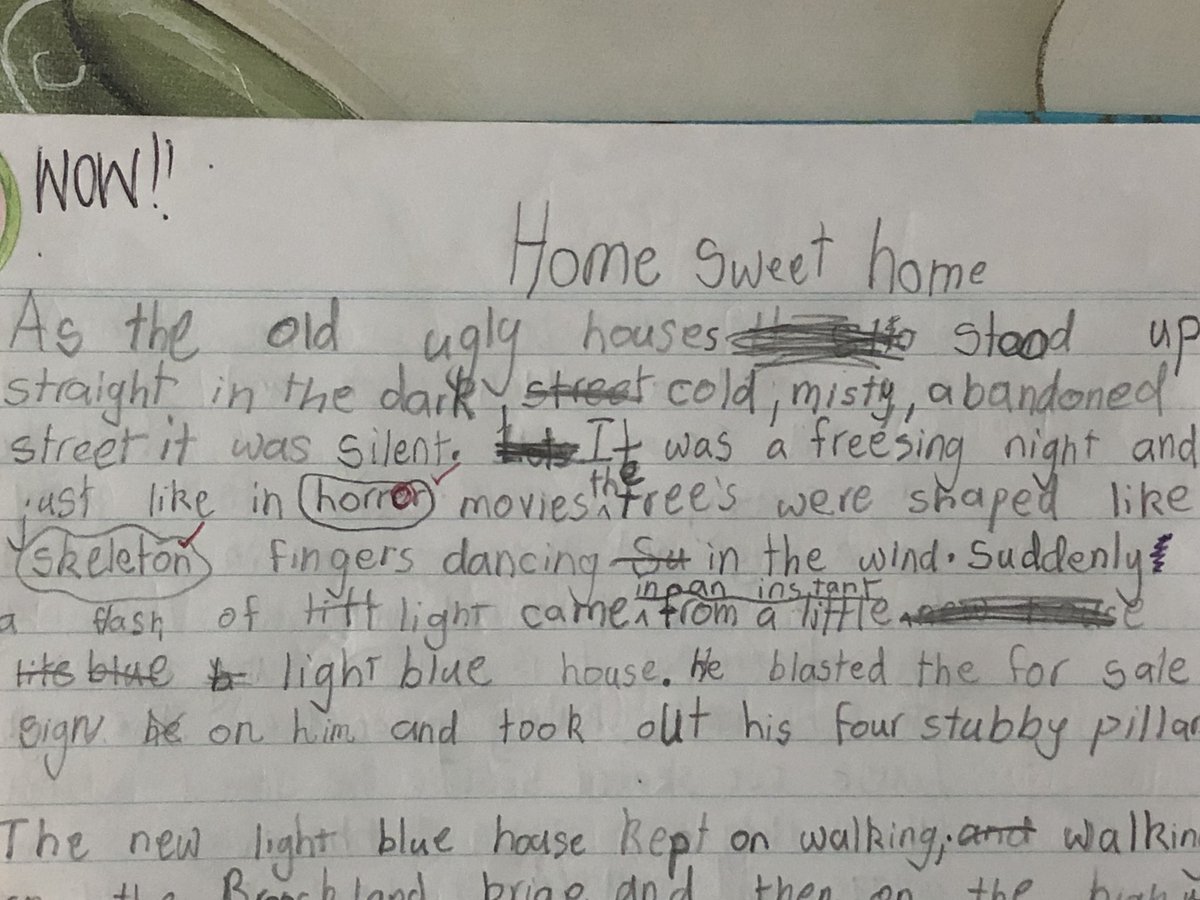 WOW!!
Home sweet home
As the old ugly houses stood up
straight in the dark, street cold, misty, abandoned
street it was silent. It was a freesing night and
just like in horror movies the tree's were shaped like
skeleton fingers dancing Su in the wind. Suddenly
a flash of light came in an instant from a little
blue light blue house. He blasted the for sale
sign he on him and took out his four stubby pillar
The new light blue house kept on walking, and walkin
the and then on the